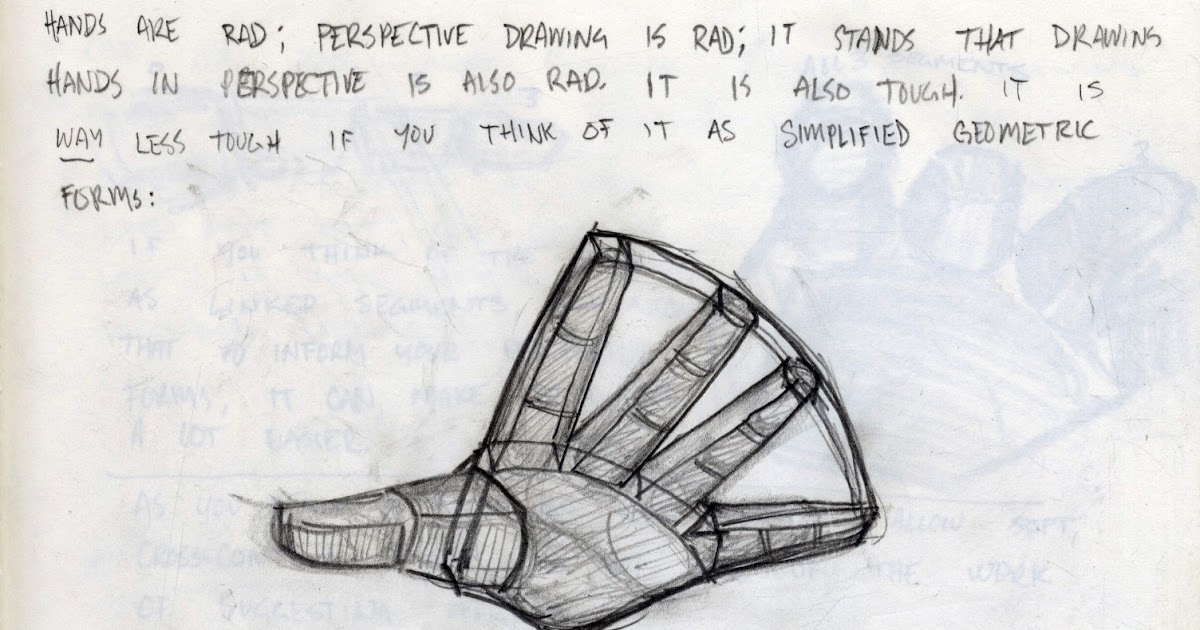 HANDS ARE RAD; PERSPECTIVE DRAWING IS RAD; IT STANDS THAT DRAWING
HANDS IN PERSPECTIVE IS ALSO RAD. IT IS ALSO TOUGH. IT IS
WAY LESS TOUGH IF YOU THINK OF IT AS SIMPLIFIED GEOMETRIC
FORMS:
SEGMENTS
3
3
IF YOU THINK OF THE
AS LINKED SEGMENTS
THAT TO INFORM YOUR
FORMS, IT CAN MAKE
A LOT EASIER
AS YOU ALLOW SOFT,
OF THE WORK
OF SUGGESTING